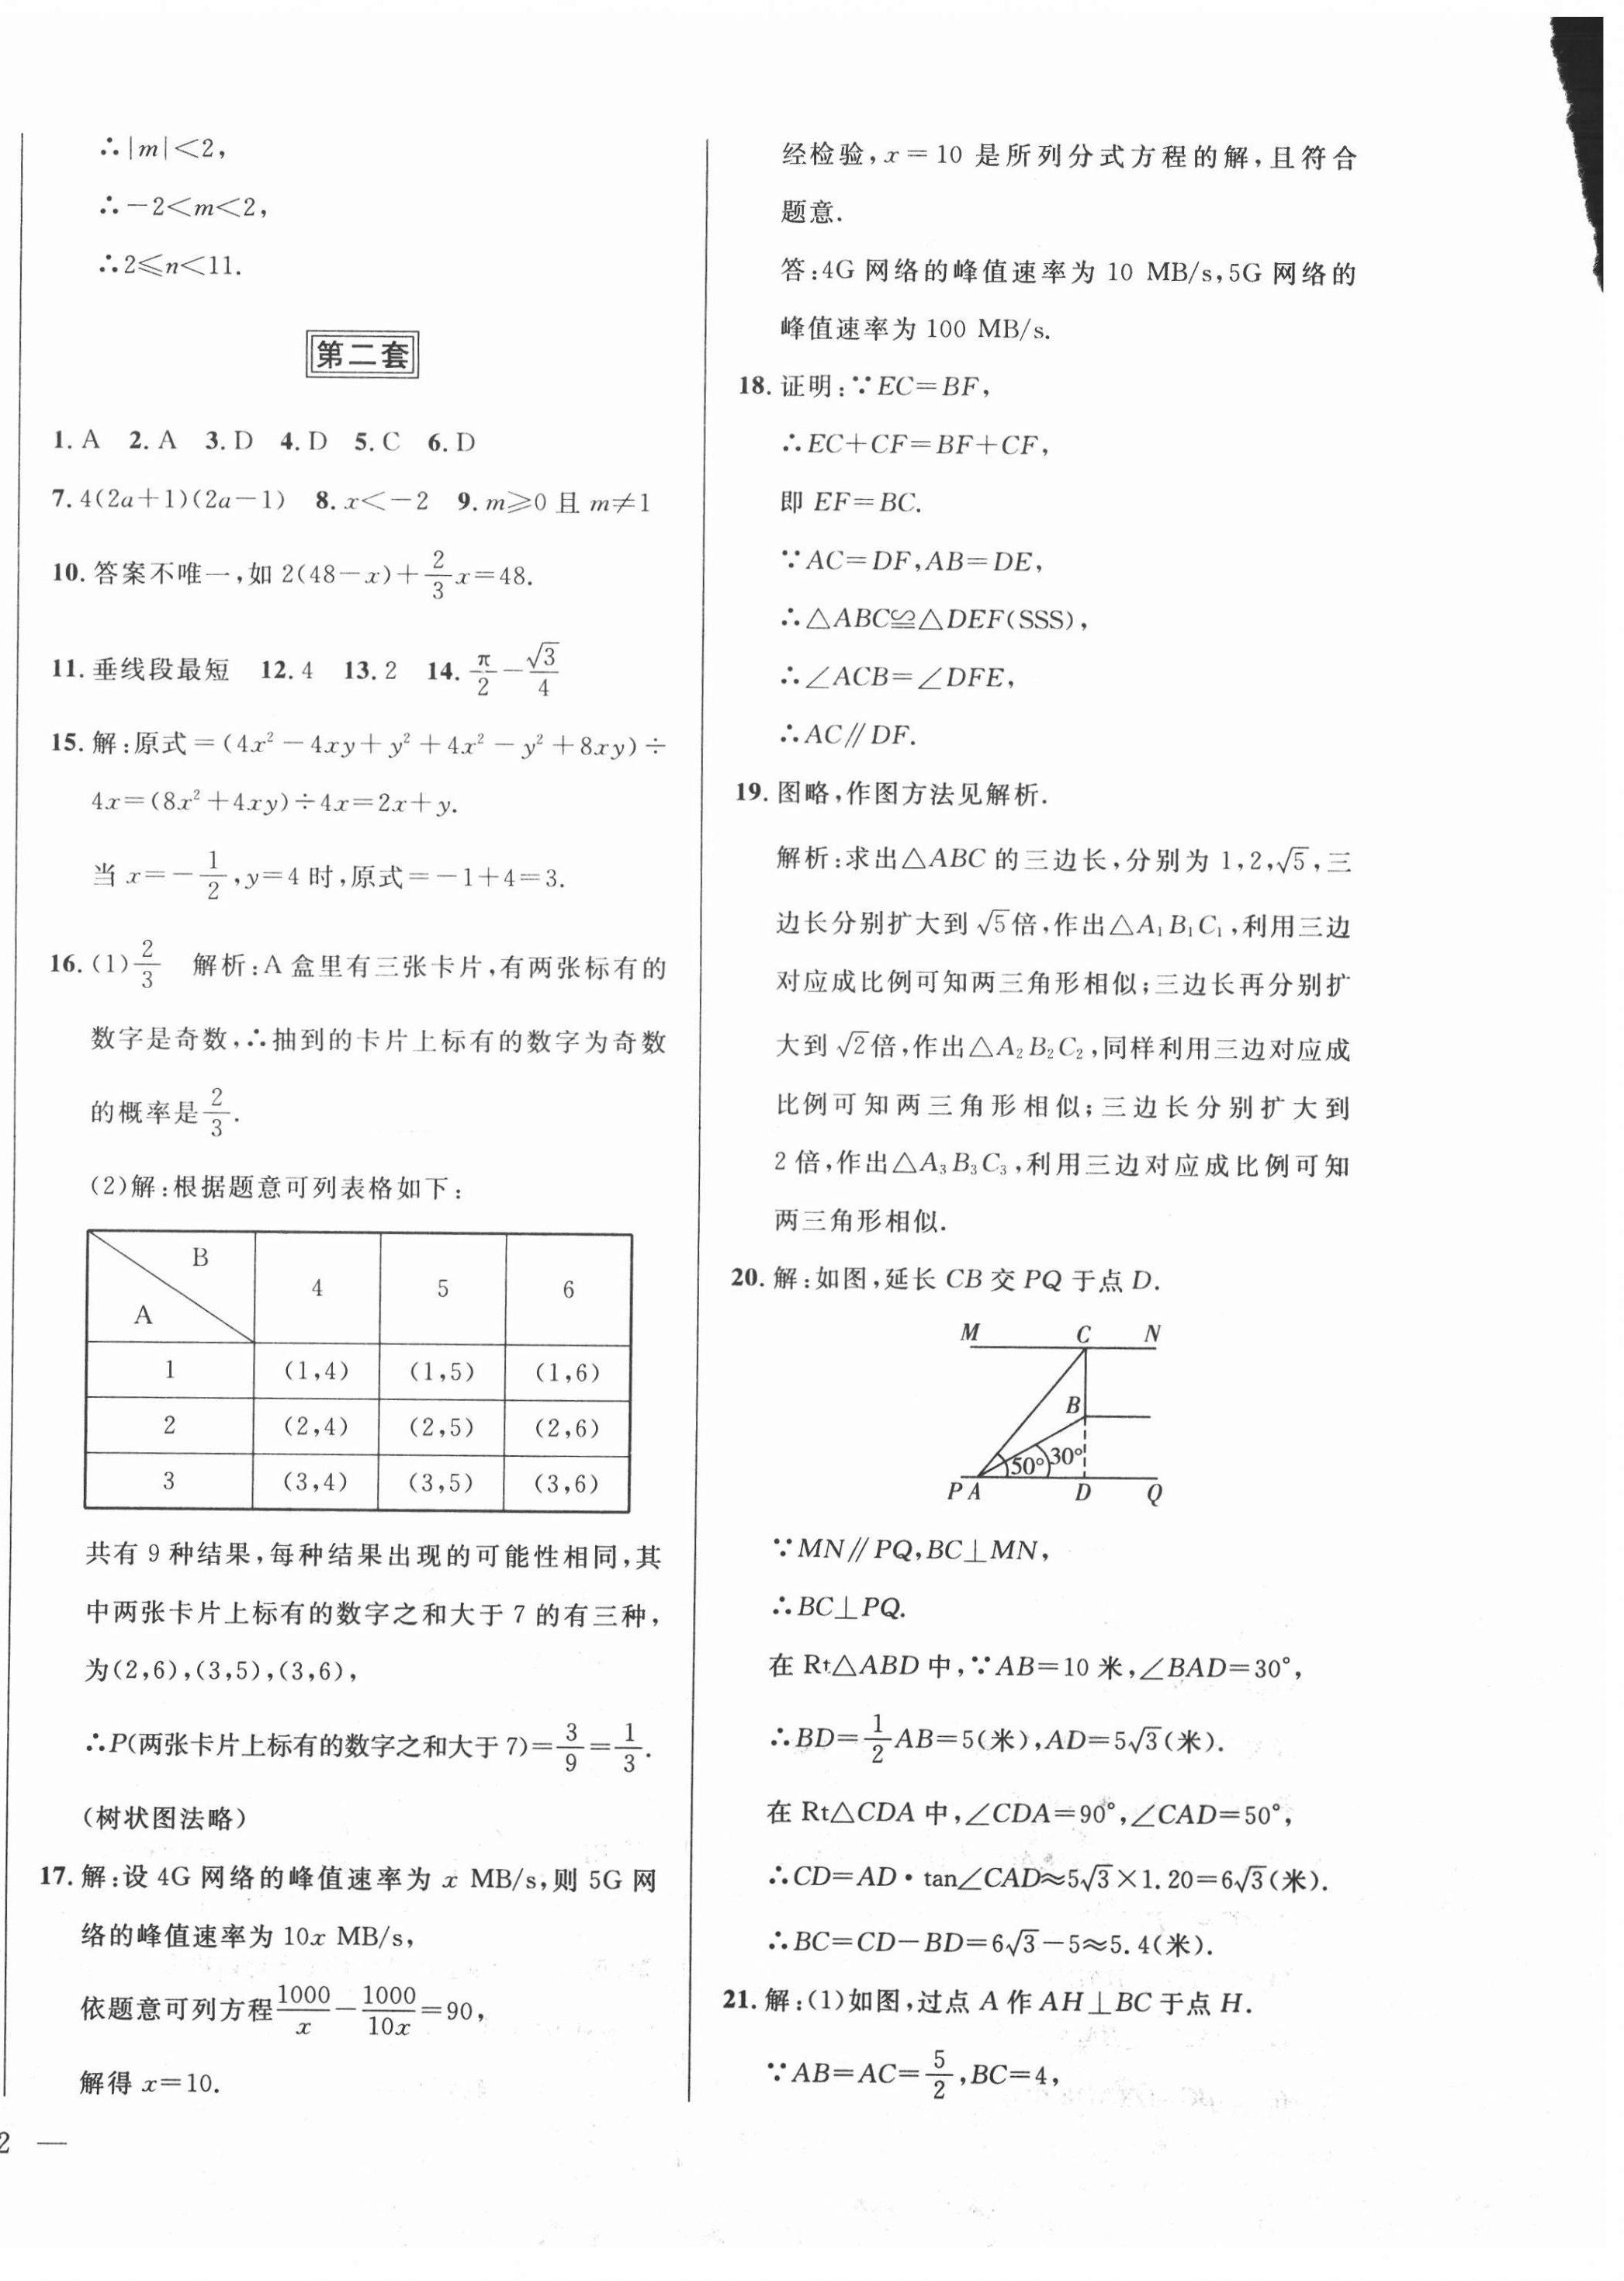 ∴|m|<2,
∴-2<m<2,
∴2≤n<11.
第二套
1. A 2. A 3. D 4. D 5. C 6. D
7. 4(2a+1)(2a-1) 8. x<-2 9. m≥0 且 m≠1
10. 答案不唯一,如 2(48-x)+2/3x=48.
11. 垂线段最短 12. 4 13. 2 14. π/2-√3/4
15. 解:原式=(4x²-4xy+y²+4x²-y²+8xy)÷
4x=(8x²+4xy)÷4x=2x+y.
当 x=-1/2,y=4 时,原式=-1+4=3.
16. (1)2/3 解析:A 盒里有三张卡片,有两张标有的
数字是奇数,∴抽到的卡片上标有的数字为奇数
的概率是2/3.
(2)解:根据题意可列表格如下:
B
A
4 5 6
1 (1,4) (1,5) (1,6)
2 (2,4) (2,5) (2,6)
3 (3,4) (3,5) (3,6)
共有 9 种结果,每种结果出现的可能性相同,其
中两张卡片上标有的数字之和大于 7 的有三种,
为(2,6),(3,5),(3,6),
∴P(两张卡片上标有的数字之和大于 7)=3/9=1/3.
(树状图法略)
17. 解:设 4G 网络的峰值速率为 x MB/s,则 5G 网
络的峰值速率为 10x MB/s,
依题意可列方程1000/x-1000/10x=90,
解得 x=10.
2 —
经检验,x=10 是所列分式方程的解,且符合
题意.
答:4G 网络的峰值速率为 10 MB/s,5G 网络的
峰值速率为 100 MB/s.
18. 证明:∵EC=BF,
∴EC+CF=BF+CF,
即 EF=BC.
∵AC=DF,AB=DE,
∴△ABC≌△DEF(SSS),
∴∠ACB=∠DFE,
∴AC∥DF.
19. 图略,作图方法见解析.
解析:求出△ABC 的三边长,分别为 1,2,√5,三
边长分别扩大到√5倍,作出△A₁B₁C₁,利用三边
对应成比例可知两三角形相似;三边长再分别扩
大到√2倍,作出△A₂B₂C₂,同样利用三边对应成
比例可知两三角形相似;三边长分别扩大到
2 倍,作出△A₃B₃C₃,利用三边对应成比例可知
两三角形相似.
20. 解:如图,延长 CB 交 PQ 于点 D.
M C N
B
50° 30°
P A D Q
∵MN∥PQ,BC⊥MN,
∴BC⊥PQ.
在 Rt△ABD 中,∵AB=10 米,∠BAD=30°,
∴BD=1/2AB=5(米),AD=5√3(米).
在 Rt△CDA 中,∠CDA=90°,∠CAD=50°,
∴CD=AD·tan∠CAD≈5√3×1.20=6√3(米).
∴BC=CD-BD=6√3-5≈5.4(米).
21. 解:(1)如图,过点 A 作 AH⊥BC 于点 H.
∵AB=AC=5/2,BC=4,